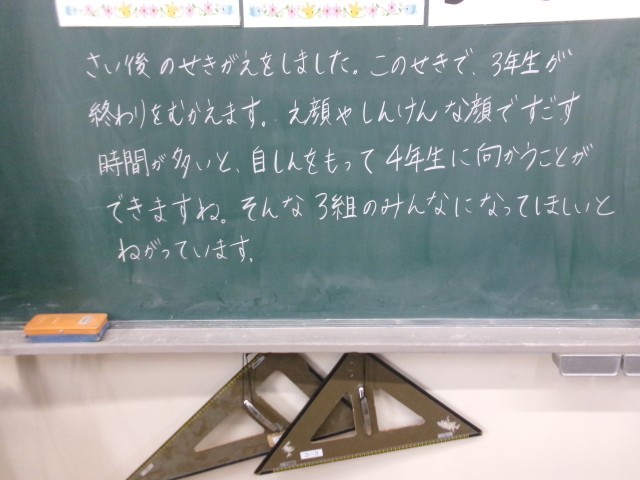 さい後のせきがえをしました。このせきで、3年生が
終わりをむかえます。え顔やしんけんな顔ですごす
時間が多いと、自しんをもって4年生に向かうことが
できますね。そんな3組のみんなになってほしいと
ねがっています。